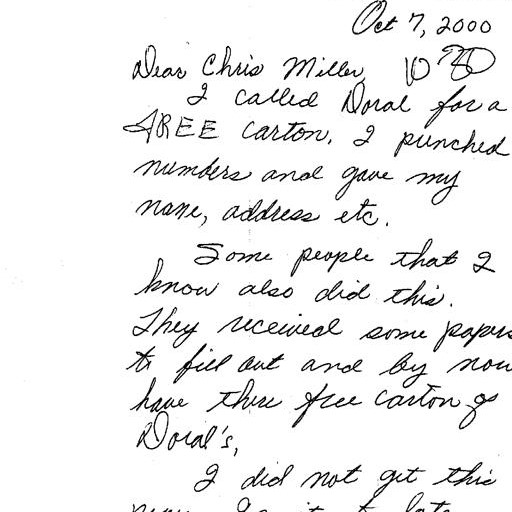 Oct 7, 2000
Dear Chris Miller,
I called Doral for a
FREE carton. I punched
numbers and gave my
name, address etc.
Some people that I
know also did this.
They received some papers
to fill out and by now
have there free carton of
Doral's,
I did not get this